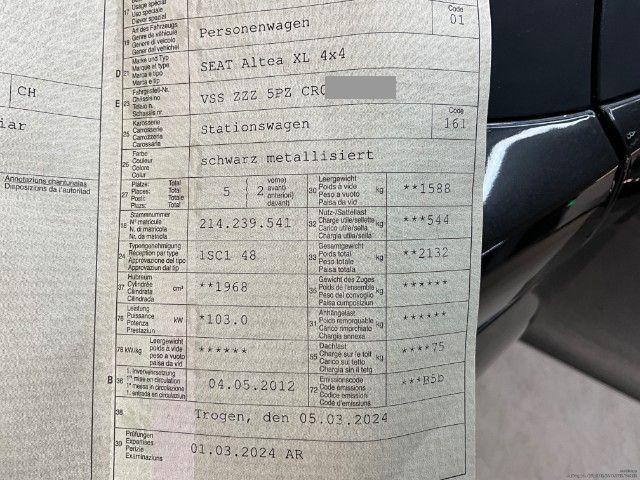 CH
iar
Annotazioni cantonali
Disposizioni da l'autoritad
Code
01
17
Usage spécial
Uso speciale
19
Art des Fahrzeugs
Genre de véhicule
Genere di veicolo
Gener dal vehichel
Personenwagen
D
21
Marke und Typ
Marque et type
Marca e tipo
Marca e tip
SEAT Altea XL 4x4
E
23
Fahrgestell-Nr.
Châssis no
Telaio n.
Schassis nr.
VSS ZZZ 5PZ CR
25
Karosserie
Carrosserie
Carrozzeria
Carossaria
Stationswagen
Code
161
26
Farbe
Couleur
Colore
Colur
schwarz metallisiert
27
Plätze: Total
Places: Total
Posti: Totale
Plazs: Total
5 ( 2
vorne)
avant)
anteriori)
davant)
30
Leergewicht
Poids à vide
Peso a vuoto
Paisa da vid
kg
**1588
18
Stammnummer
N° matricule
N. di matricola
Nr. da matricla
214.239.541
32
Nutz-/Sattellast
Charge utile/sellette
Carico utile/sella
Chargia utila/sella
kg
***544
24
Typengenehmigung
Réception par type
Approvazione del tipo
Approvaziun dal tip
1SC1 48
33
Gesamtgewicht
Poids total
Peso totale
Paisa totala
kg
**2132
37
Hubraum
Cylindrée
Cilindrata
Cilindrada
cm³
**1968
35
Gewicht des Zuges
Poids de l'ensemble
Peso del convoglio
Paisa cumposiziun
kg
******
76
Leistung
Puissance
Potenza
Prestaziun
kW
*103.0
31
Anhängelast
Poids remorquable
Carico rimorchiato
Chargia annexa
kg
******
78 kW/kg
Leergewicht
poids à vide
peso a vuoto
paisa da vid
******
55
Dachlast
Charge sur le toit
Carico sul tetto
Chargia sin il tetg
kg
****75
B
36
1. Inverkehrsetzung
1re mise en circulation
1a messa in circolazione
1. entrada en circulaziun
04.05.2012
72
Emissionscode
Code émissions
Codice emissioni
Code d'emissiuns
***B5b
38
Trogen, den 05.03.2024
39
Prüfungen
Expertises
Perizie
Examinaziuns
01.03.2024 AR